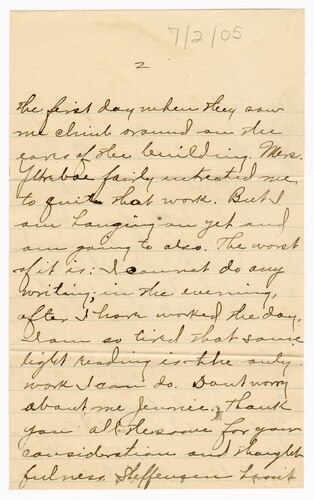 7/2/05
2
the first day when they saw
me climb around on the
eaves of the building. Mrs.
fairly entreated me
to quit that work. But I
am hanging on yet and
am going to also. The worst
of it is: I cannot do any
writing; in the evening,
after I have worked the day,
I am so tired that some
light reading is the only
work I can do. Dont worry
about me Jennie, thank
you all the same for your
consideration and thought
fulness. Steffensen